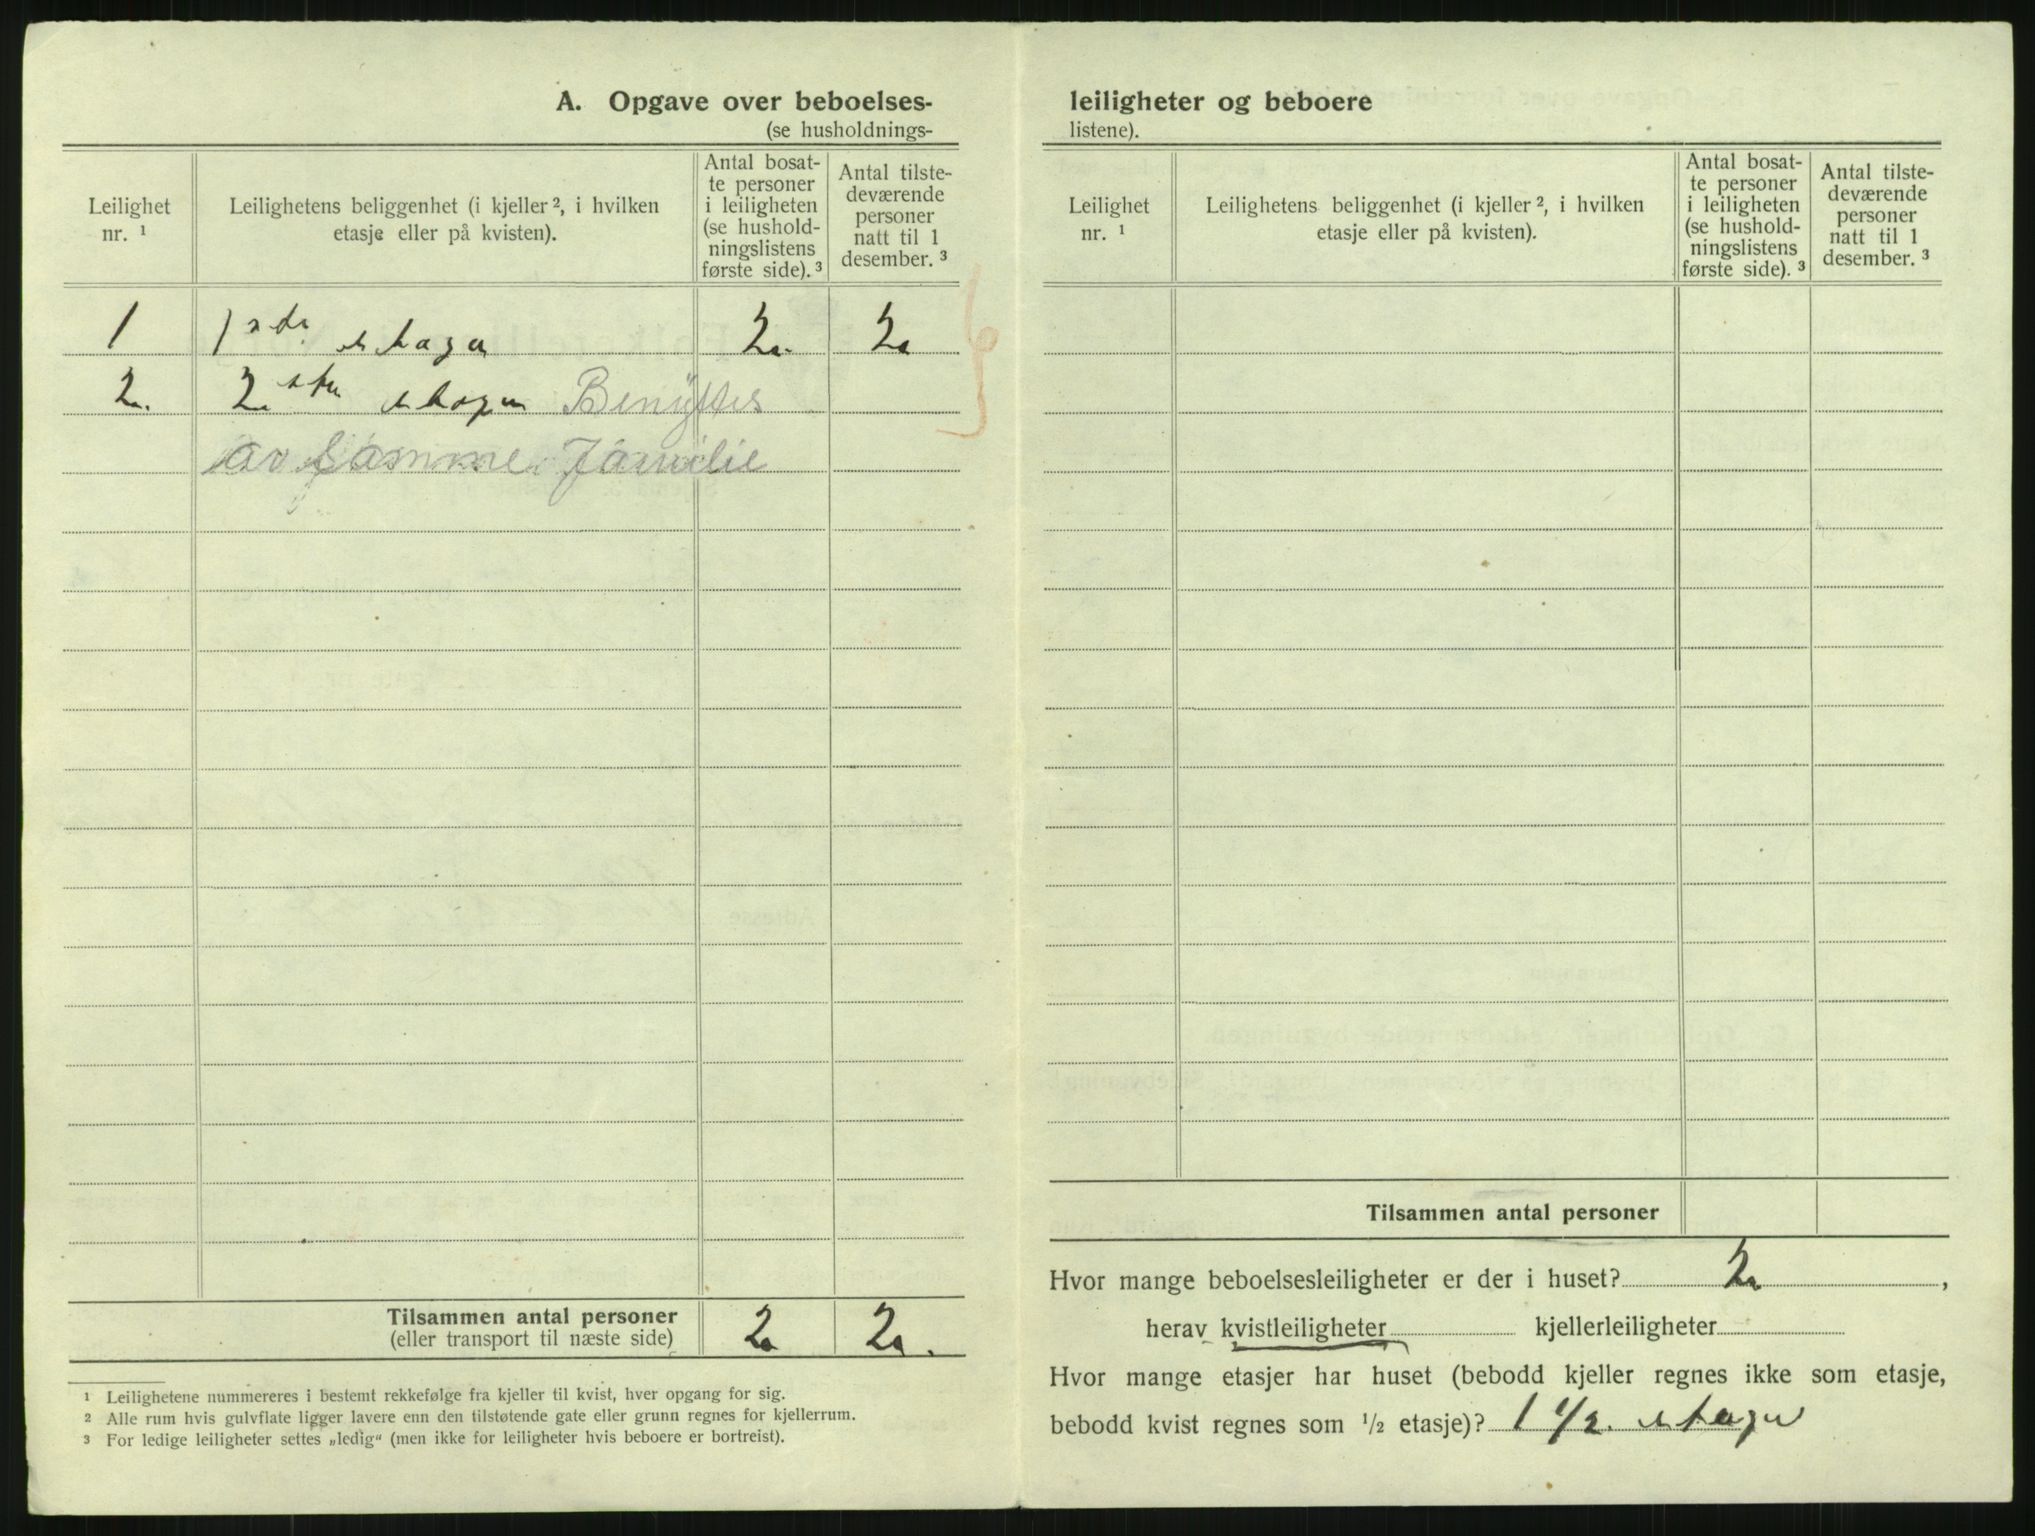 A. Opgave over beboelses-
(se husholdnings-
Leilighet
nr. ¹
Leilighetens beliggenhet (i kjeller ², i hvilken
etasje eller på kvisten).
Antal bosat-
te personer
i leiligheten
(se hushold-
ningslistens
første side). ³
Antal tilste-
deværende
personer
natt til 1
desember. ³
1 1ste etage 2 2
2. 2den etage Benyttes
av samme Familie
Tilsammen antal personer
(eller transport til næste side)
2 2.
¹ Leilighetene nummereres i bestemt rekkefølge fra kjeller til kvist, hver opgang for sig.
² Alle rum hvis gulvflate ligger lavere enn den tilstøtende gate eller grunn regnes for kjellerrum.
³ For ledige leiligheter settes „ledig“ (men ikke for leiligheter hvis beboere er bortreist).
leiligheter og beboere
listene).
Leilighet
nr. ¹
Leilighetens beliggenhet (i kjeller ², i hvilken
etasje eller på kvisten).
Antal bosat-
te personer
i leiligheten
(se hushold-
ningslistens
første side). ³
Antal tilste-
deværende
personer
natt til 1
desember. ³
Tilsammen antal personer
Hvor mange beboelsesleiligheter er der i huset? 2,
herav kvistleiligheter kjellerleiligheter
Hvor mange etasjer har huset (bebodd kjeller regnes ikke som etasje,
bebodd kvist regnes som ½ etasje)? 1 1/2. etage